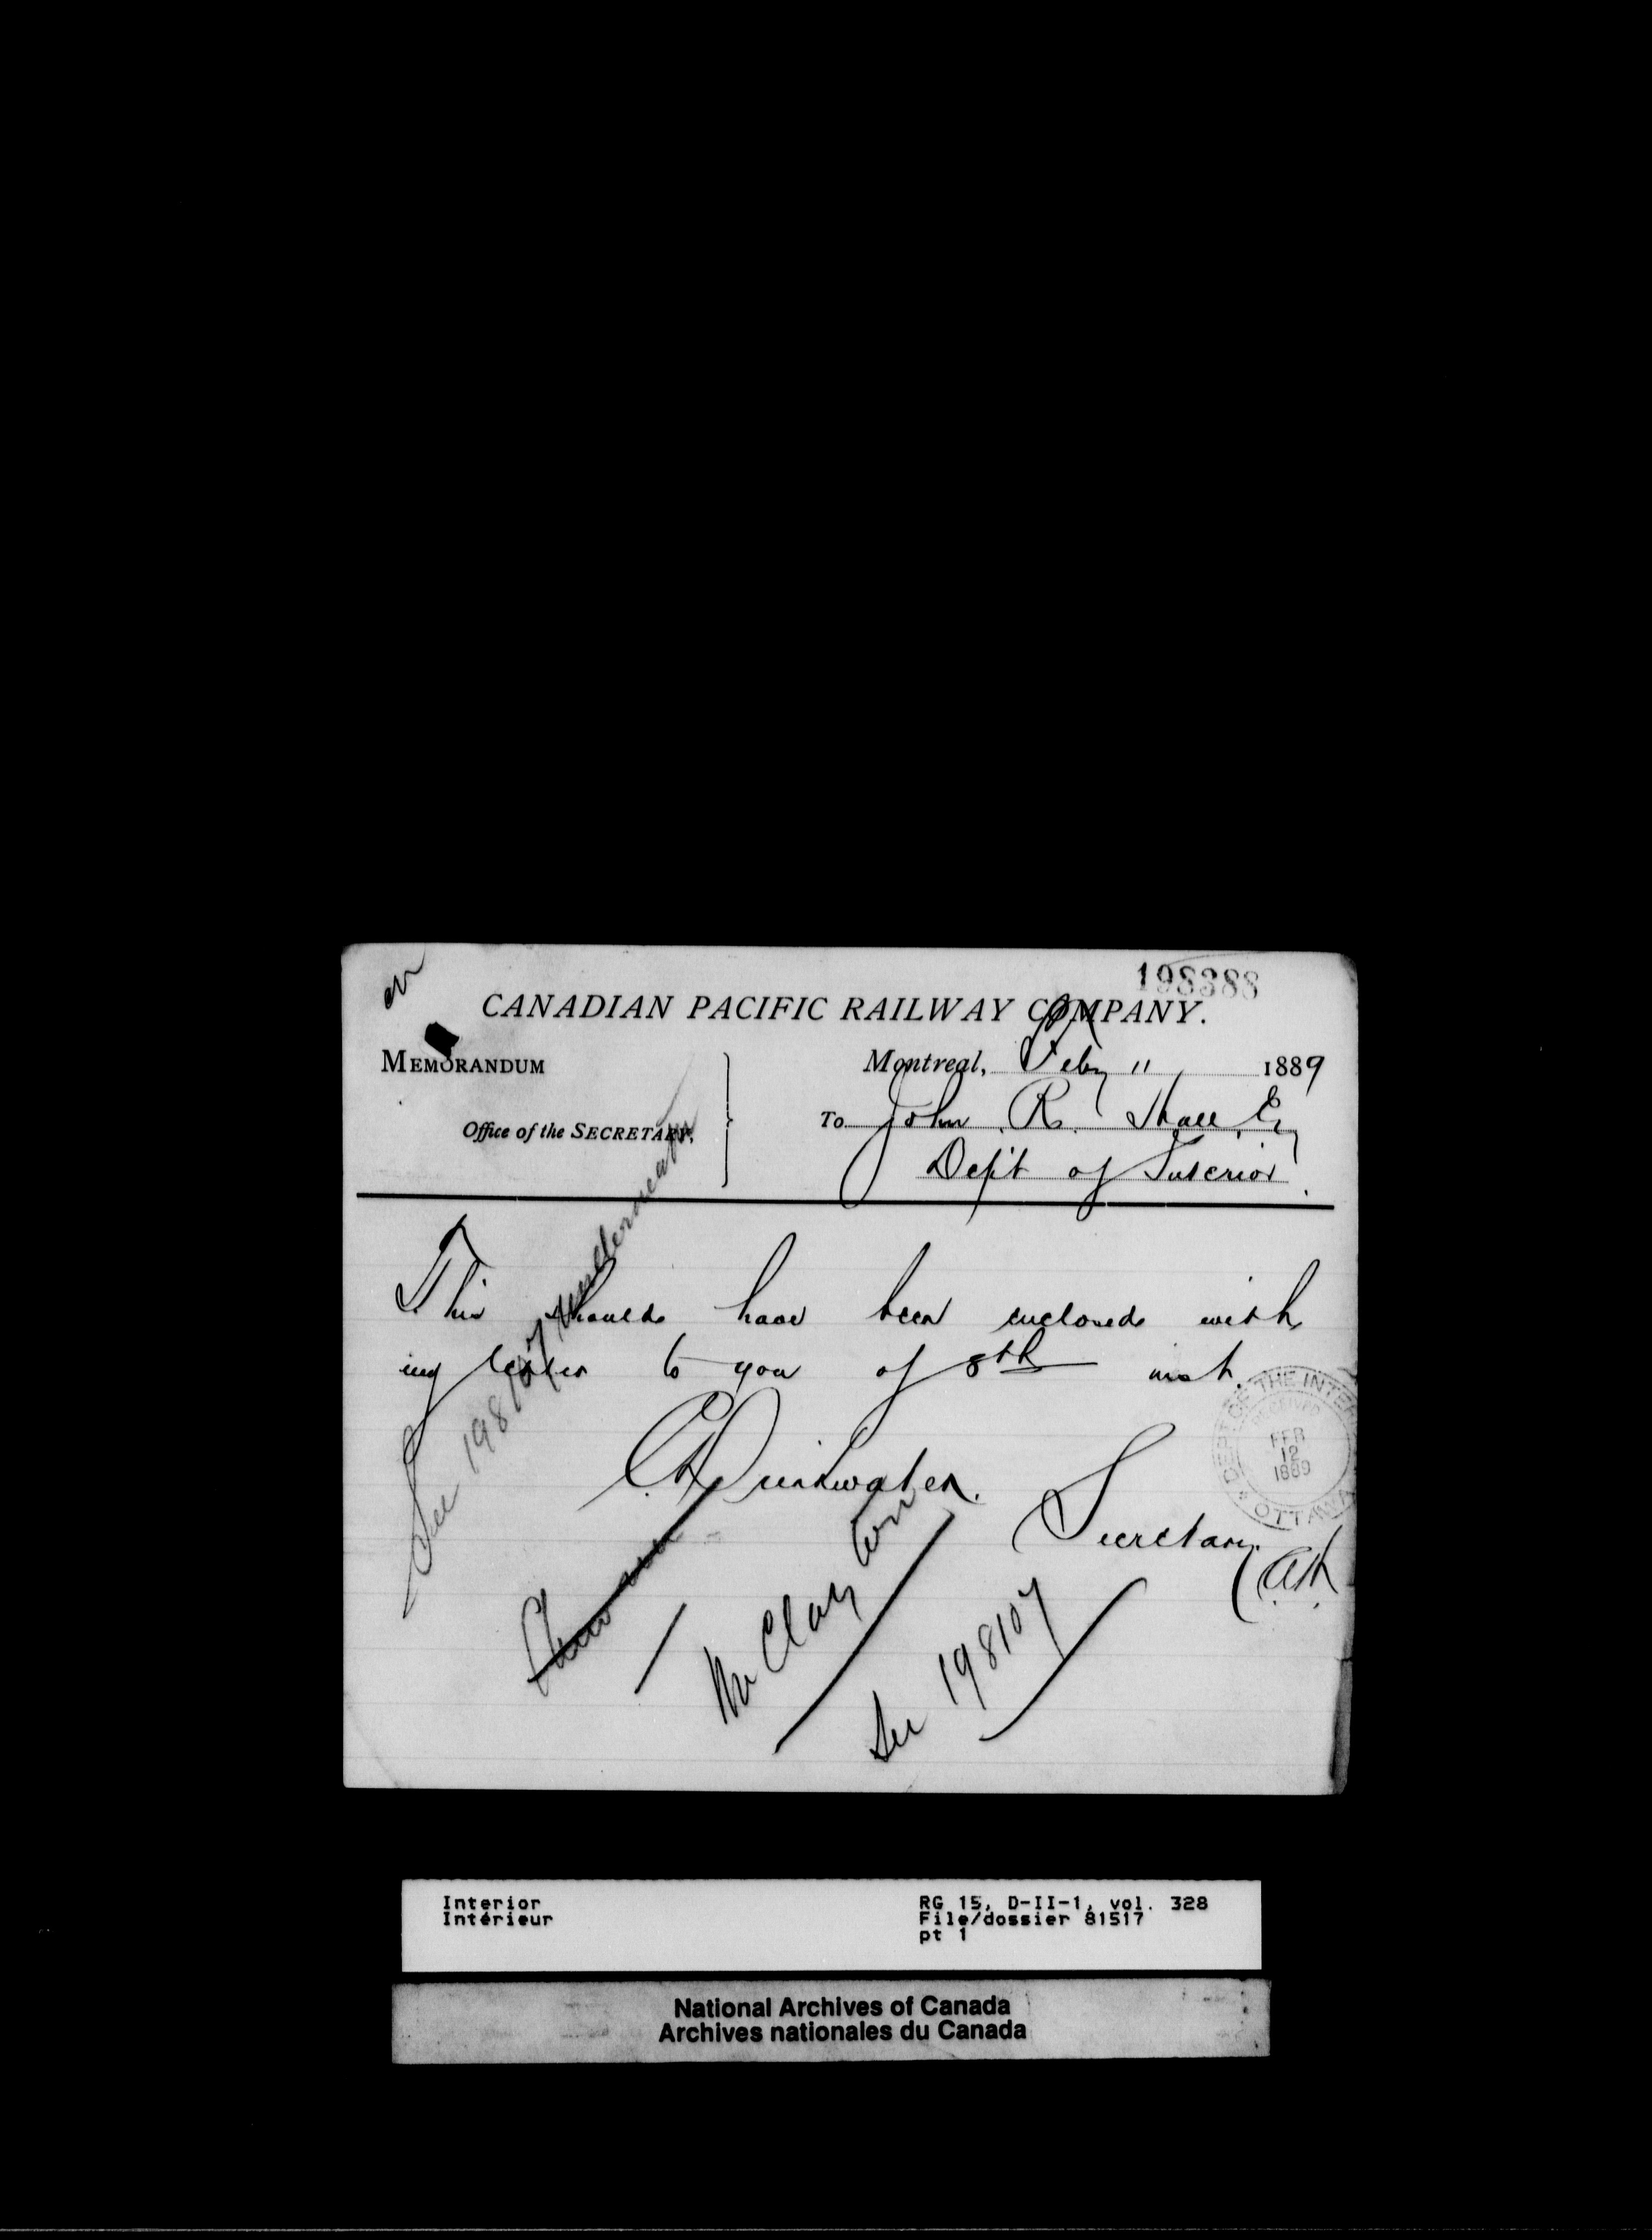 198388
CANADIAN PACIFIC RAILWAY COMPANY.
MEMORANDUM
Montreal, Feby 11 1889
Office of the SECRETARY,
To John R. Hall Esq
Dept of Interior.
This should have been enclosed with
my letter to you of 8th inst.
C Drinkwater.
Secretary.
See 198107 underneath
Mr Clayton
See 198107
DEPT OF THE INTERIOR
RECEIVED
FEB
12
1889
OTTAWA
Interior
Intérieur
RG 15, D-II-1, vol. 328
File/dossier 81517
pt 1
National Archives of Canada
Archives nationales du Canada